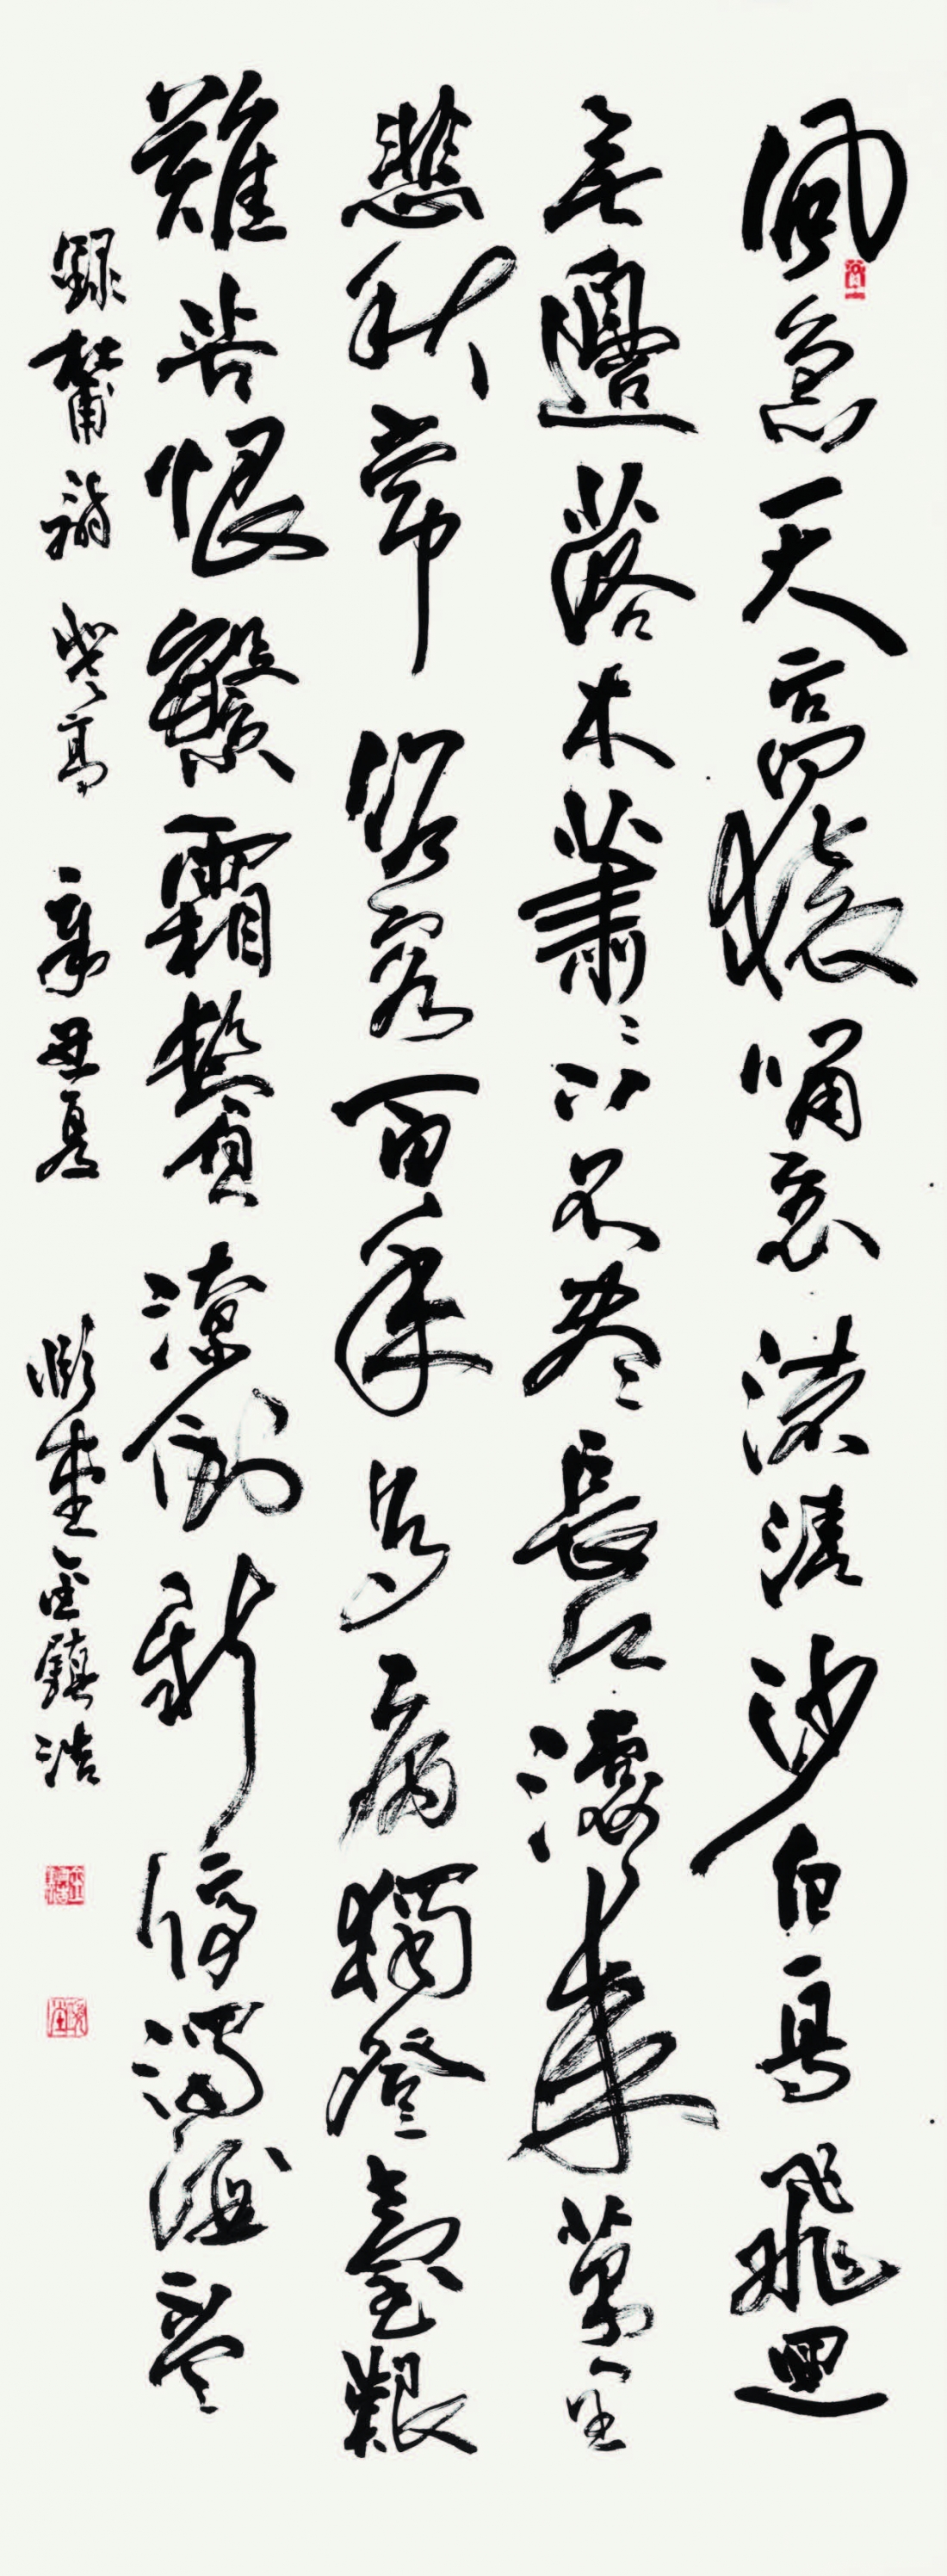 風急天高猿嘯哀渚清沙白鳥飛迴
無邊落木蕭〻下不盡長江滾〻來萬里
悲秋常作客百年多病獨登臺艱
難苦恨繁霜鬢潦倒新停濁酒盃
錄杜甫詩 登高 辛丑夏 堂金鎭浩